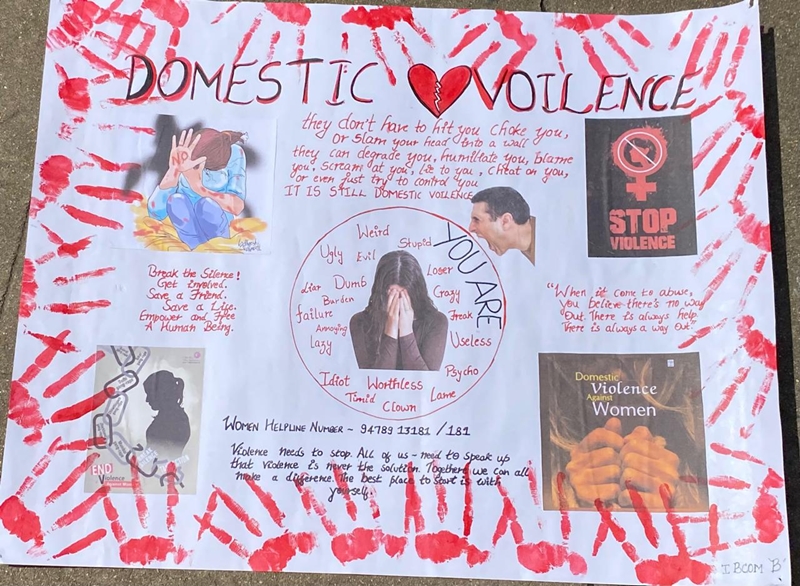 DOMESTIC VOILENCE
they don't have to hit you choke you,
or slam your head into a wall
they can degrade you, humiliate you, blame
you, scream at you, lie to you, cheat on you,
or even just try to control you
IT IS STILL DOMESTIC VOILENCE
STOP
VIOLENCE
YOU ARE
Weird
Stupid
Ugly
Evil
Loser
Liar
Dumb
Crazy
Burden
failure
Freak
Annoying
Lazy
Useless
Psycho
Idiot
Worthless
Lame
Timid
Clown
Break the Silence!
Get involved.
Save a Friend.
Save a Life.
Empower and Free
A Human Being.
"When it come to abuse,
you believe there's no way
Out. There is always help
There is always a way Out"
END
Violence
Domestic
Violence
Against
Women
WOMEN HELPLINE NUMBER - 94789 13181 / 181
Violence needs to stop. All of us - need to speak up
that violence is never the solution. Together we can all
make a difference. The best place to start is with
yourself.
I BCOM 'B'